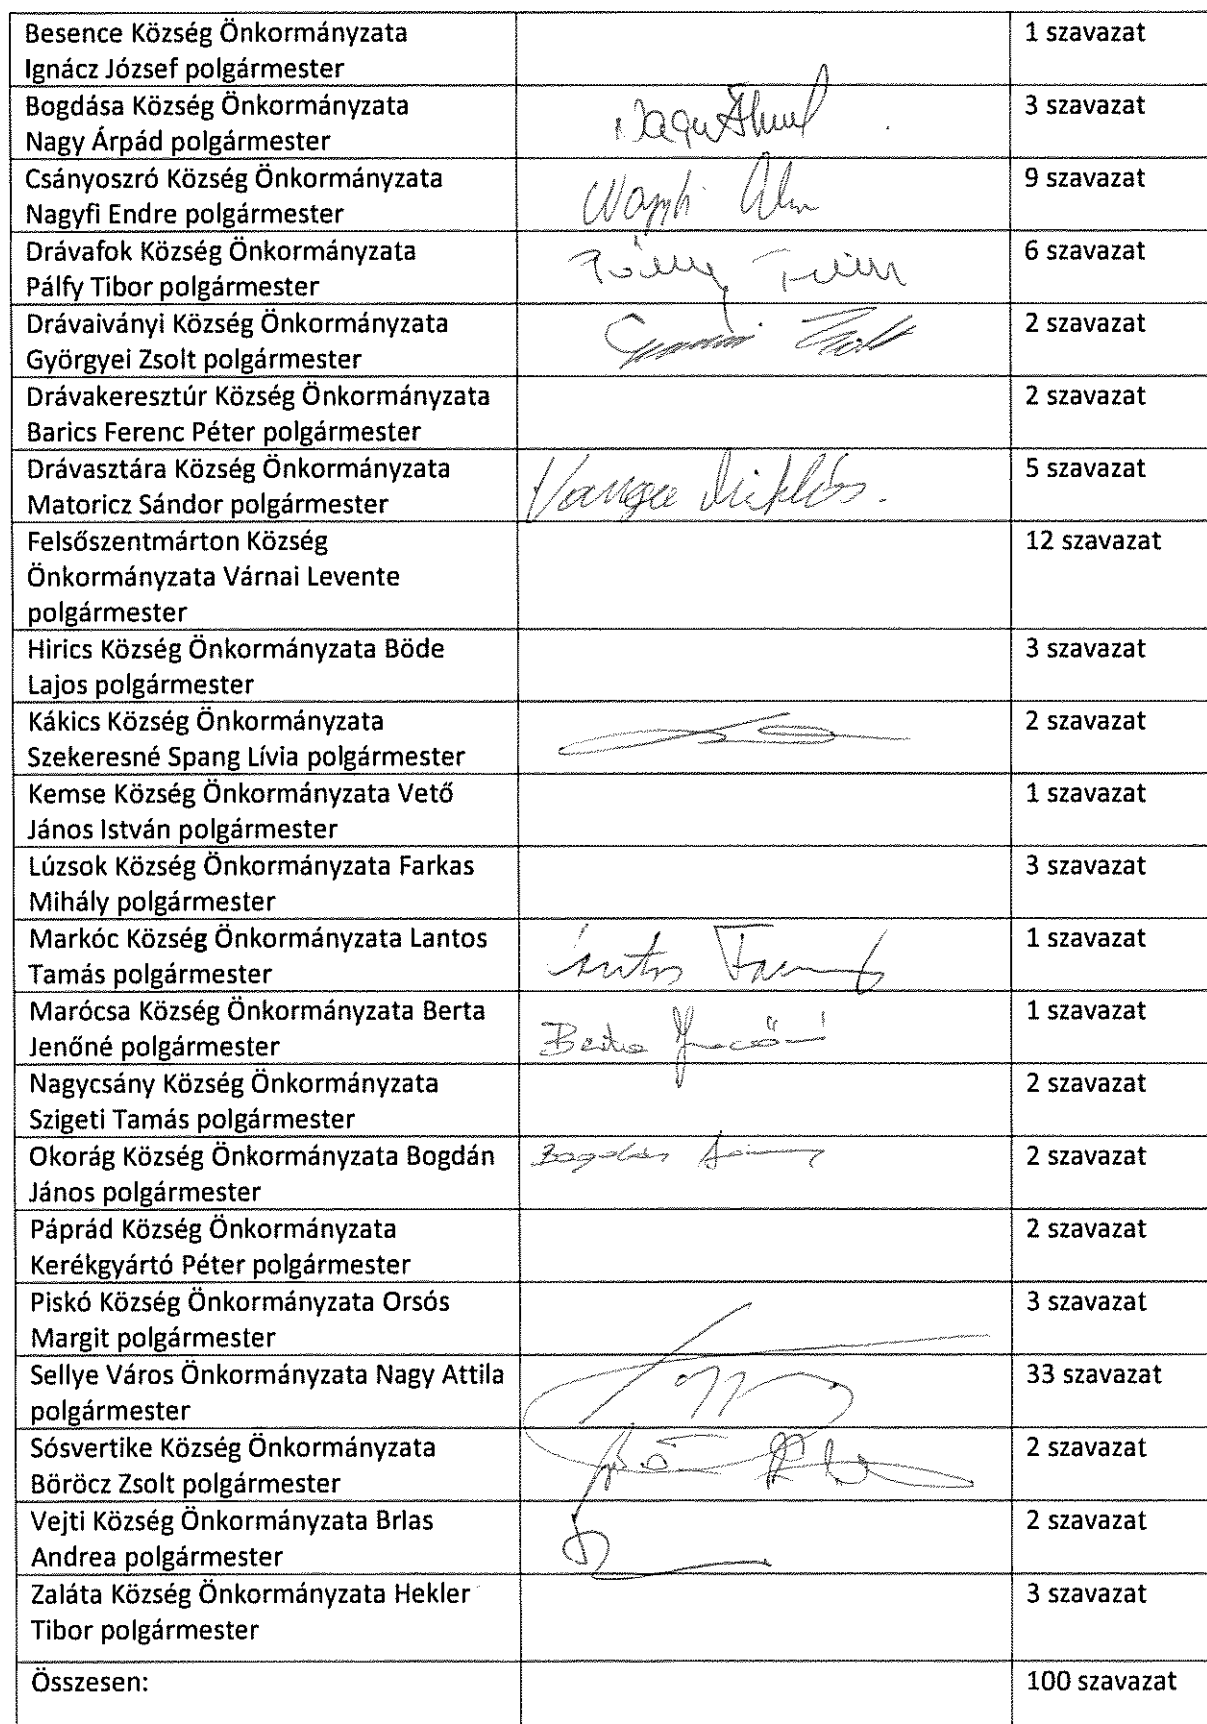 Besence Község Önkormányzata
Ignácz József polgármester
1 szavazat
Bogdása Község Önkormányzata
Nagy Árpád polgármester
3 szavazat
Csányoszró Község Önkormányzata
Nagyfi Endre polgármester
9 szavazat
Drávafok Község Önkormányzata
Pálfy Tibor polgármester
6 szavazat
Drávaiványi Község Önkormányzata
Györgyei Zsolt polgármester
2 szavazat
Drávakeresztúr Község Önkormányzata
Barics Ferenc Péter polgármester
2 szavazat
Drávasztára Község Önkormányzata
Matoricz Sándor polgármester
Varga Miklós.
5 szavazat
Felsőszentmárton Község
Önkormányzata Várnai Levente
polgármester
12 szavazat
Hirics Község Önkormányzata Böde
Lajos polgármester
3 szavazat
Kákics Község Önkormányzata
Szekeresné Spang Lívia polgármester
2 szavazat
Kemse Község Önkormányzata Vető
János István polgármester
1 szavazat
Lúzsok Község Önkormányzata Farkas
Mihály polgármester
3 szavazat
Markóc Község Önkormányzata Lantos
Tamás polgármester
1 szavazat
Marócsa Község Önkormányzata Berta
Jenőné polgármester
1 szavazat
Nagycsány Község Önkormányzata
Szigeti Tamás polgármester
2 szavazat
Okorág Község Önkormányzata Bogdán
János polgármester
2 szavazat
Páprád Község Önkormányzata
Kerékgyártó Péter polgármester
2 szavazat
Piskó Község Önkormányzata Orsós
Margit polgármester
3 szavazat
Sellye Város Önkormányzata Nagy Attila
polgármester
33 szavazat
Sósvertike Község Önkormányzata
Böröcz Zsolt polgármester
2 szavazat
Vejti Község Önkormányzata Brlas
Andrea polgármester
2 szavazat
Zaláta Község Önkormányzata Hekler
Tibor polgármester
3 szavazat
Összesen:
100 szavazat